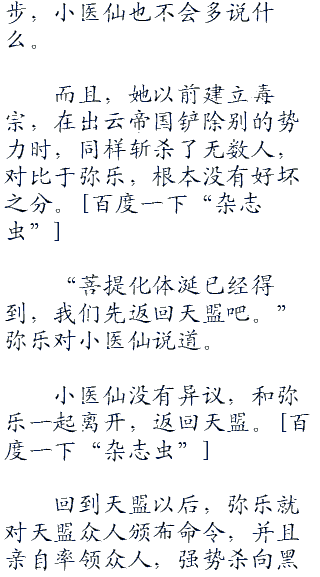 步，小医仙也不会多说什
么。
而且，她以前建立毒
宗，在出云帝国铲除别的势
力时，同样斩杀了无数人，
对比于弥乐，根本没有好坏
之分。[百度一下“杂志
虫”]
“菩提化体涎已经得
到，我们先返回天盟吧。”
弥乐对小医仙说道。
小医仙没有异议，和弥
乐一起离开，返回天盟。[百
度一下“杂志虫”]
回到天盟以后，弥乐就
对天盟众人颁布命令，并且
亲自率领众人，强势杀向黑